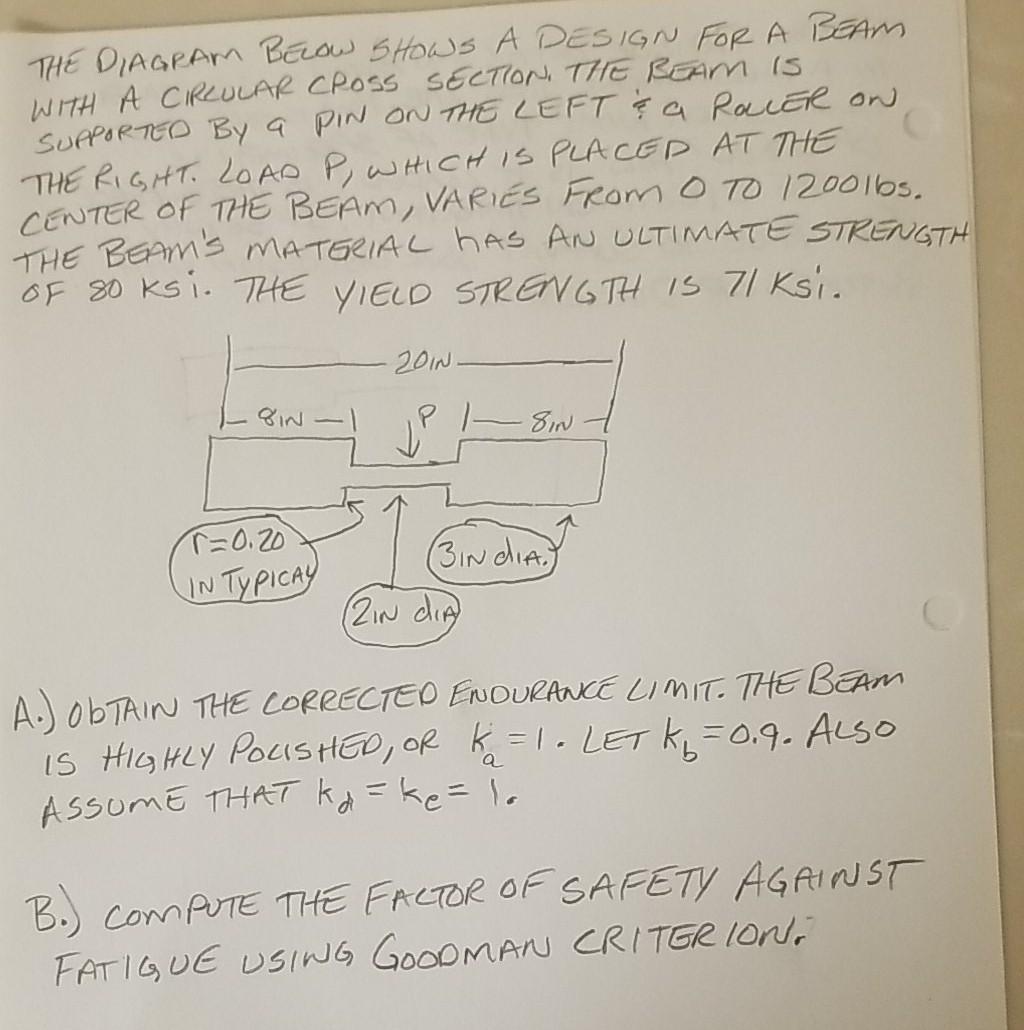 THE DIAGRAM BELOW SHOWS A DESIGN FOR A BEAM
WITH A CIRCULAR CROSS SECTION. THE BEAM IS
SUPPORTED BY a PIN ON THE LEFT & a ROLLER ON
THE RIGHT. LOAD P, WHICH IS PLACED AT THE
CENTER OF THE BEAM, VARIES FROM 0 TO 1200 lbs.
THE BEAM'S MATERIAL hAS AN ULTIMATE STRENGTH
OF 80 ksi. THE YIELD STRENGTH IS 71 Ksi.
20IN
8IN P 8IN
r=0.20
IN TYPICAL
3IN dIA.
2IN dIA
A.) ObTAIN THE CORRECTED ENDURANCE LIMIT. THE BEAM
IS HIGHLY POLISHED, OR ka = 1. LET kb = 0.9. ALSO
ASSUME THAT kd = ke = 1.
B.) COMPUTE THE FACTOR OF SAFETY AGAINST
FATIGUE USING GOODMAN CRITERION.